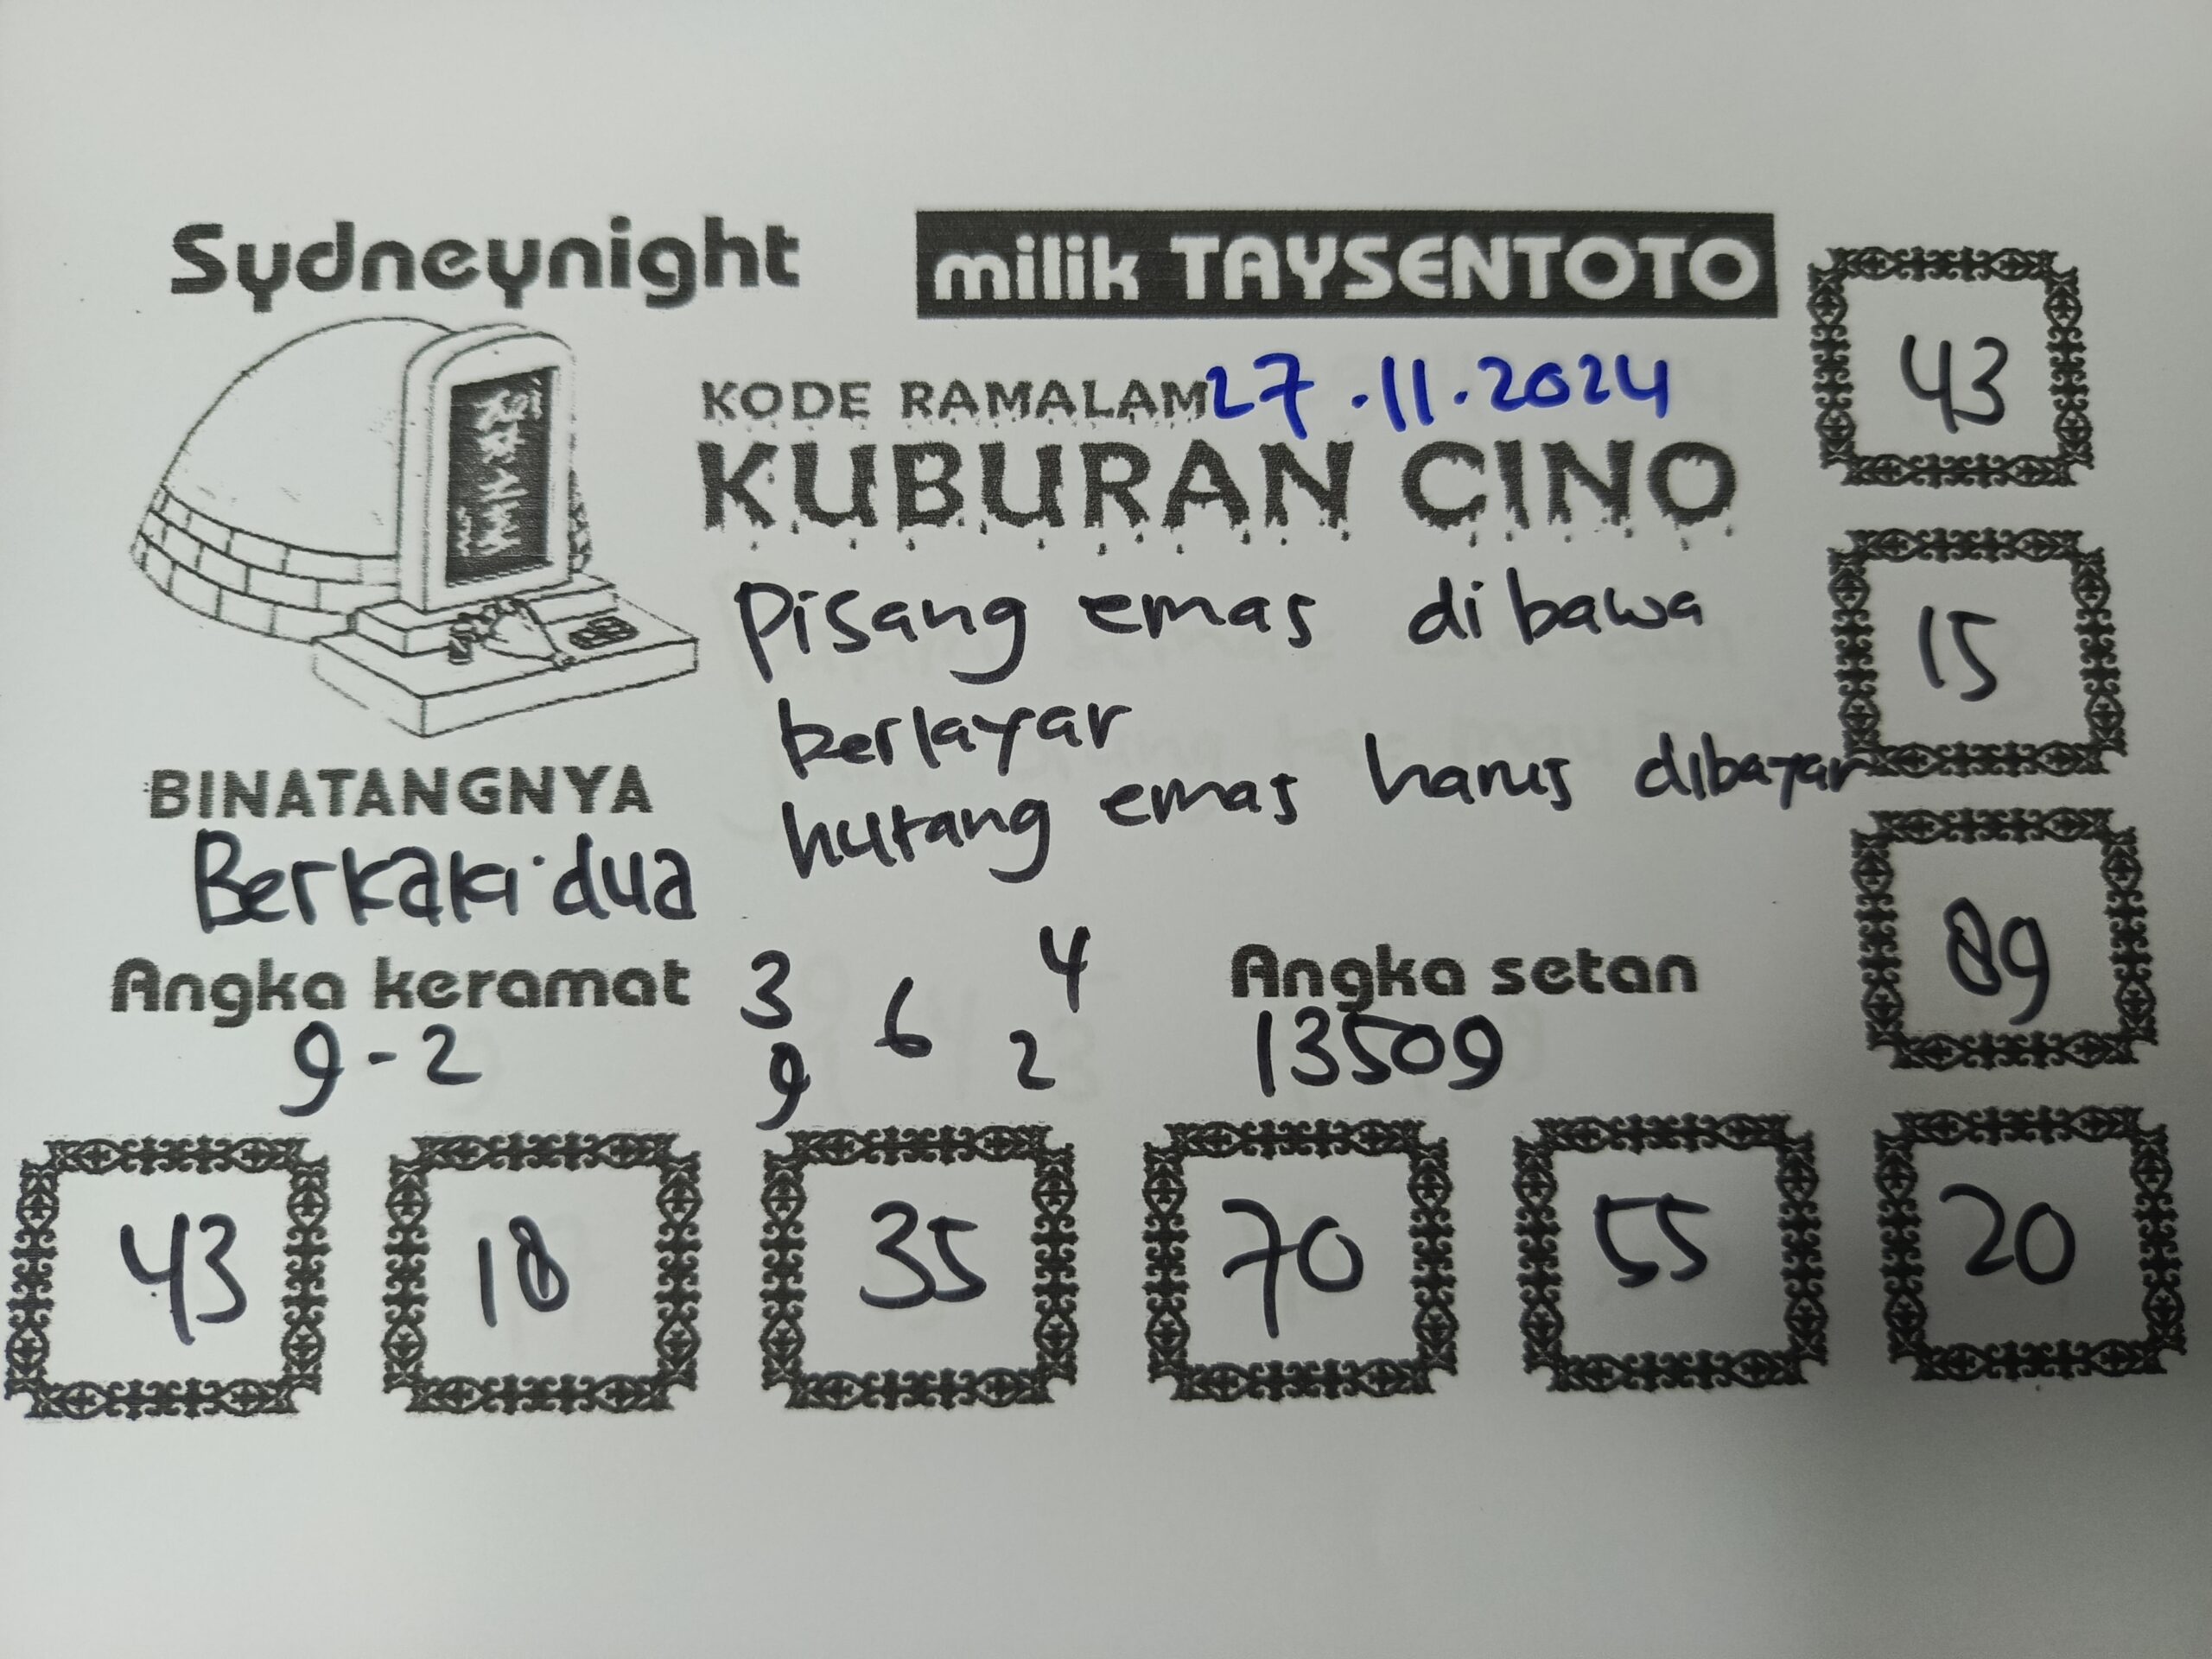 Sydneynight
milik TAYSENTOTO
KODE RAMALAM 27.11.2024
KUBURAN CINO
Pisang emas dibawa
berlayar
hutang emas harus dibayar
BINATANGNYA
Berkaki dua
Angka keramat
9-2
3 4
6
9 2
Angka setan
13509
43
15
89
43 18 35 70 55 20